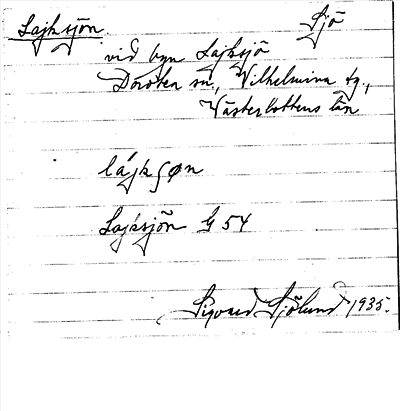 Lajksjön. Sjö
vid byn Lajksjö
Dorotea sn., Vilhelmina tg.,
Västerbottens län
lájkʃøn
Lajksjön G 54
Sigurd Sjölund 1935.